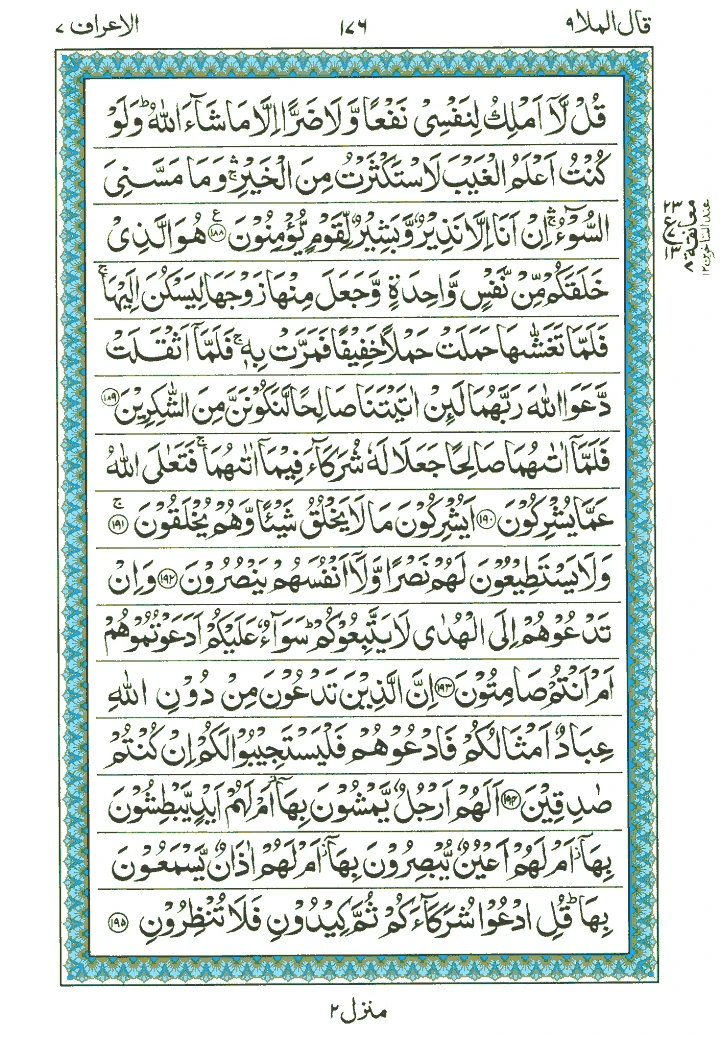 قال الملا ٩ ١٧٦ الاعراف ٧
قُلْ لَّاۤ اَمْلِكُ لِنَفْسِیْ نَفْعًا وَّلَا ضَرًّا اِلَّا مَا شَآءَ اللّٰهُ ؕ وَلَوْ
كُنْتُ اَعْلَمُ الْغَیْبَ لَاسْتَكْثَرْتُ مِنَ الْخَیْرِ ۛۚ وَمَا مَسَّنِیَ
السُّوْٓءُ ۛۚ اِنْ اَنَا اِلَّا نَذِیْرٌ وَّبَشِیْرٌ لِّقَوْمٍ یُّؤْمِنُوْنَ ﴿۱۸۸﴾ ع هُوَ الَّذِیْ
خَلَقَكُمْ مِّنْ نَّفْسٍ وَّاحِدَةٍ وَّجَعَلَ مِنْهَا زَوْجَهَا لِیَسْكُنَ اِلَیْهَا ۚ
فَلَمَّا تَغَشّٰىهَا حَمَلَتْ حَمْلًا خَفِیْفًا فَمَرَّتْ بِهٖ ۚ فَلَمَّاۤ اَثْقَلَتْ
دَّعَوَا اللّٰهَ رَبَّهُمَا لَئِنْ اٰتَیْتَنَا صَالِحًا لَّنَكُوْنَنَّ مِنَ الشّٰكِرِیْنَ ﴿۱۸۹﴾
فَلَمَّاۤ اٰتٰىهُمَا صَالِحًا جَعَلَا لَهٗ شُرَكَآءَ فِیْمَاۤ اٰتٰىهُمَا ۚ فَتَعٰلَی اللّٰهُ
عَمَّا یُشْرِكُوْنَ ﴿۱۹۰﴾ اَیُشْرِكُوْنَ مَا لَا یَخْلُقُ شَیْـًٔا وَّهُمْ یُخْلَقُوْنَ ﴿۱۹۱﴾ ۚ
وَلَا یَسْتَطِیْعُوْنَ لَهُمْ نَصْرًا وَّلَاۤ اَنْفُسَهُمْ یَنْصُرُوْنَ ﴿۱۹۲﴾ وَاِنْ
تَدْعُوْهُمْ اِلَی الْهُدٰی لَا یَتَّبِعُوْكُمْ ؕ سَوَآءٌ عَلَیْكُمْ اَدَعَوْتُمُوْهُمْ
اَمْ اَنْتُمْ صَامِتُوْنَ ﴿۱۹۳﴾ اِنَّ الَّذِیْنَ تَدْعُوْنَ مِنْ دُوْنِ اللّٰهِ
عِبَادٌ اَمْثَالُكُمْ فَادْعُوْهُمْ فَلْیَسْتَجِیْبُوْا لَكُمْ اِنْ كُنْتُمْ
صٰدِقِیْنَ ﴿۱۹۴﴾ اَلَهُمْ اَرْجُلٌ یَّمْشُوْنَ بِهَاۤ ؗ اَمْ لَهُمْ اَیْدٍ یَّبْطِشُوْنَ
بِهَاۤ ؗ اَمْ لَهُمْ اَعْیُنٌ یُّبْصِرُوْنَ بِهَاۤ ؗ اَمْ لَهُمْ اٰذَانٌ یَّسْمَعُوْنَ
بِهَا ؕ قُلِ ادْعُوْا شُرَكَآءَكُمْ ثُمَّ كِیْدُوْنِ فَلَا تُنْظِرُوْنِ ﴿۱۹۵﴾
٢٣
ع
١٣
معانقة ٨
عند المتاخرين ١٢
منزل ٢